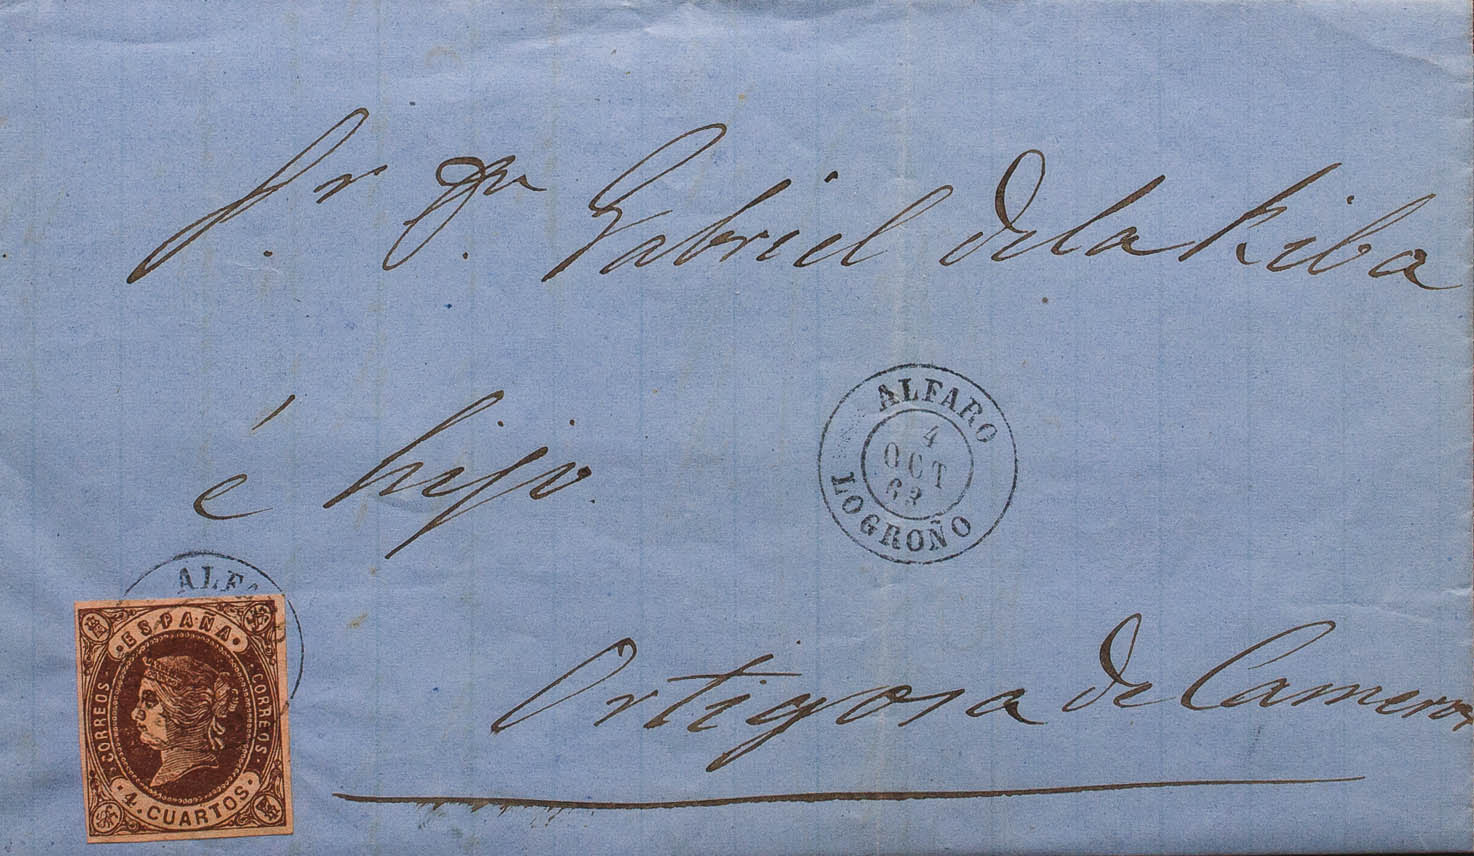 Sr. Dn. Gabriel de la Riba
é hijo.
ALFARO
4
OCT
63
LOGROÑO
ALFARO
ESPAÑA
CORREOS
CORREOS
4 CUARTOS
Ortigosa de Cameros